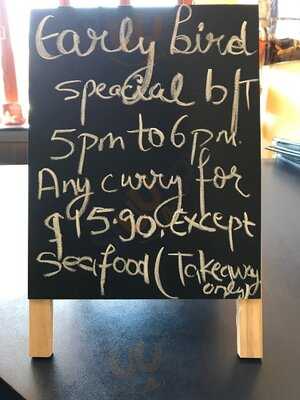 Early bird
speacial b/T
5pm to 6pm.
Any curry for
$15.90. Except
seafood (Takeaway
only)